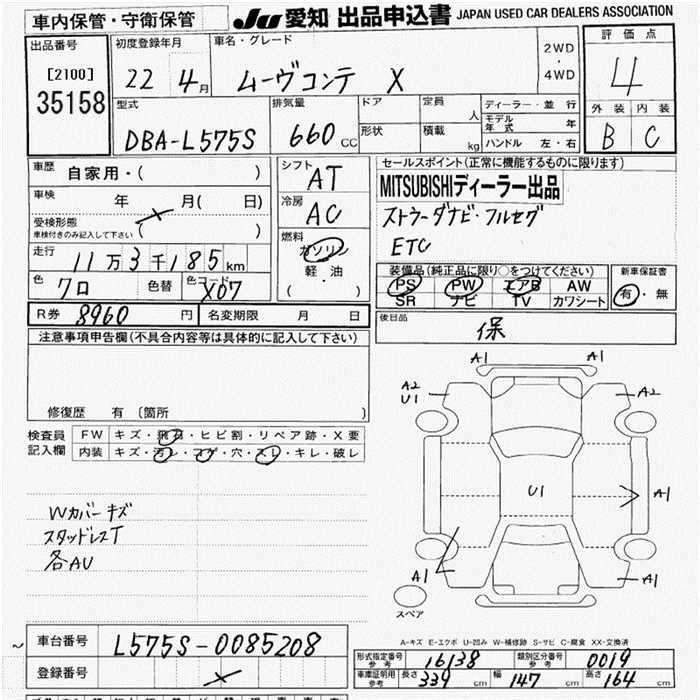 車内保管・守衛保管
Ju 愛知 出品申込書 JAPAN USED CAR DEALERS ASSOCIATION
出品番号
[2100]
35158
初度登録年月
22 4月
車名・グレード
ムーヴコンテ X
2WD
・
4WD
評価点
4
外装 内装
B C
型式
DBA-L575S
排気量
660 CC
ドア
形状
定員 人
積載 kg
ディーラー・並行
モデル年式 年
ハンドル 左・右
車歴
自家用・( )
車検 年 月( 日)
受検形態
車検付きのみ記入して下さい ( )
走行
11万3千185km
色
クロ
色替
色コード
X07
シフト
AT
冷房
AC
燃料
ガソリン
軽・油
( )
セールスポイント(正常に機能するものに限ります)
MITSUBISHIディーラー出品
ストラーダナビ・フルセグ
ETC
装備品(純正品に限り○をつけてください)
PS PW エアB AW
SR ナビ TV カワシート
新車保証書
有・無
R券 8960 円 名変期限 月 日
後日品
保
注意事項申告欄(不具合内容等は具体的に記入して下さい)
修復歴 有 〔箇所 〕
検査員
記入欄
FW キズ・飛石・ヒビ割・リペア跡・X要
内装 キズ・汚レ・コゲ・穴・スレ・キレ・破レ
Wカバーキズ
スタッドレスT
各AU
A1 A1
A2
U1
A2
U1
A1
A1
A1
スペア
A-キズ E-エクボ U-凹み W-補修跡 S-サビ C-腐食 XX-交換済
車台番号 L575S-0085208
登録番号
形式指定番号
参考
16138
類別区分番号
参考
0019
車庫証明用
参考
長さ 339 cm 幅 147 cm 高さ 164 cm